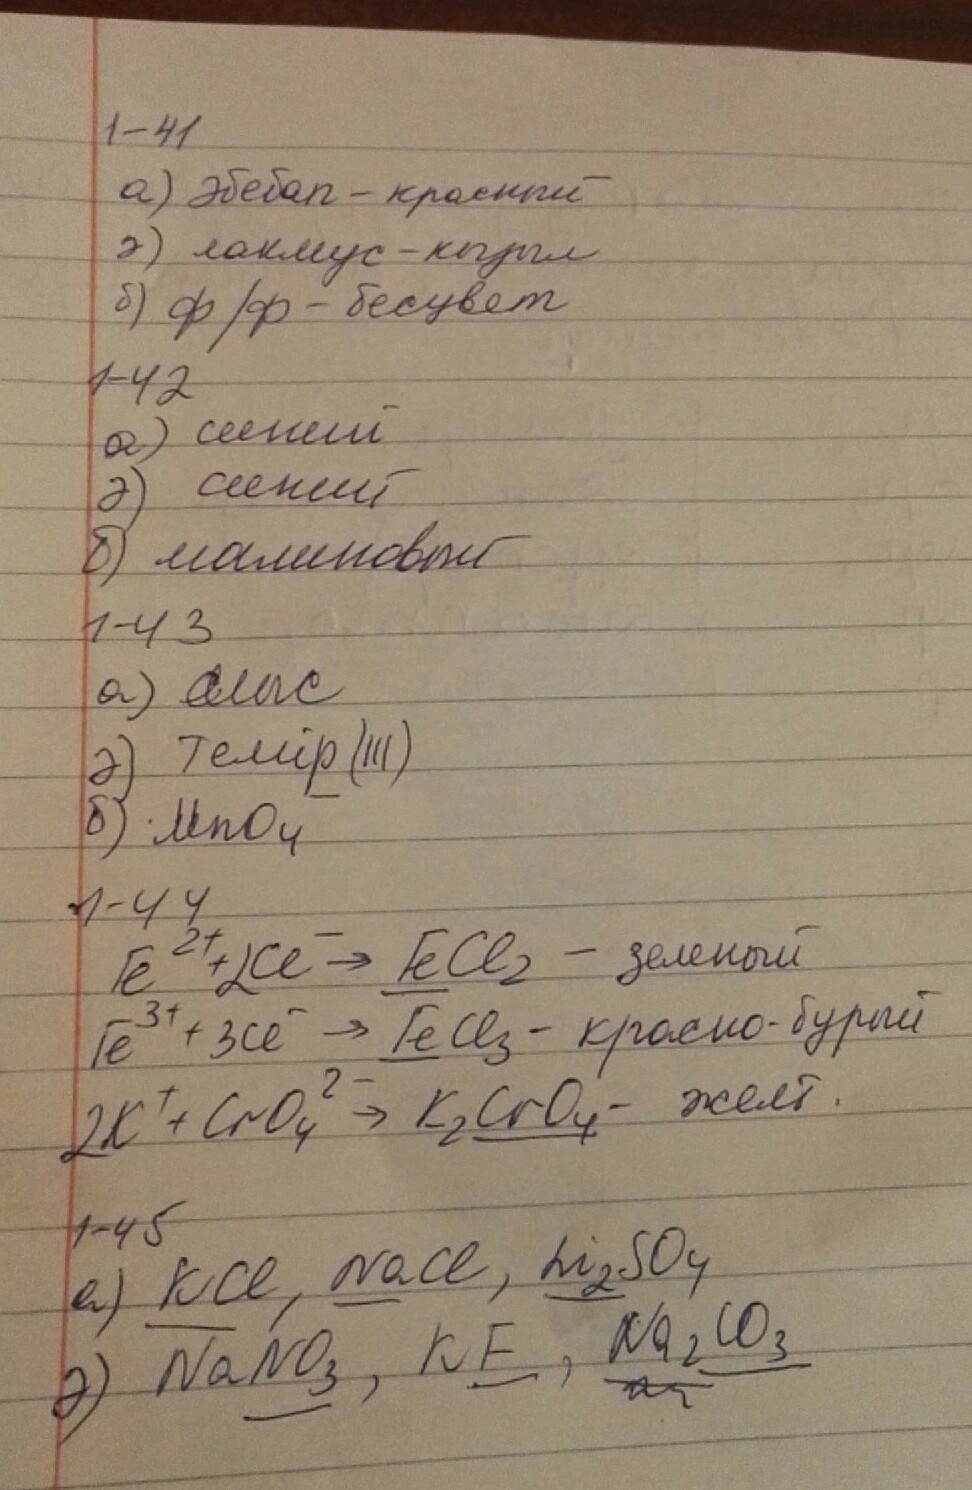 1-41
а) әбебап - красный
ә) лакмус - кызыл
б) ф/ф - бесцвет
1-42
а) синий
ә) синий
б) малиновый
1-43
а) алыс
ә) темір (III)
б) MnO₄⁻
1-44
Fe²⁺ + 2Cl⁻ → FeCl₂ - зеленый
Fe³⁺ + 3Cl⁻ → FeCl₃ - красно-бурый
2K⁺ + CrO₄²⁻ → K₂CrO₄ - желт.
1-45
а) KCl, NaCl, Li₂SO₄
ә) NaNO₃, KF, Na₂CO₃